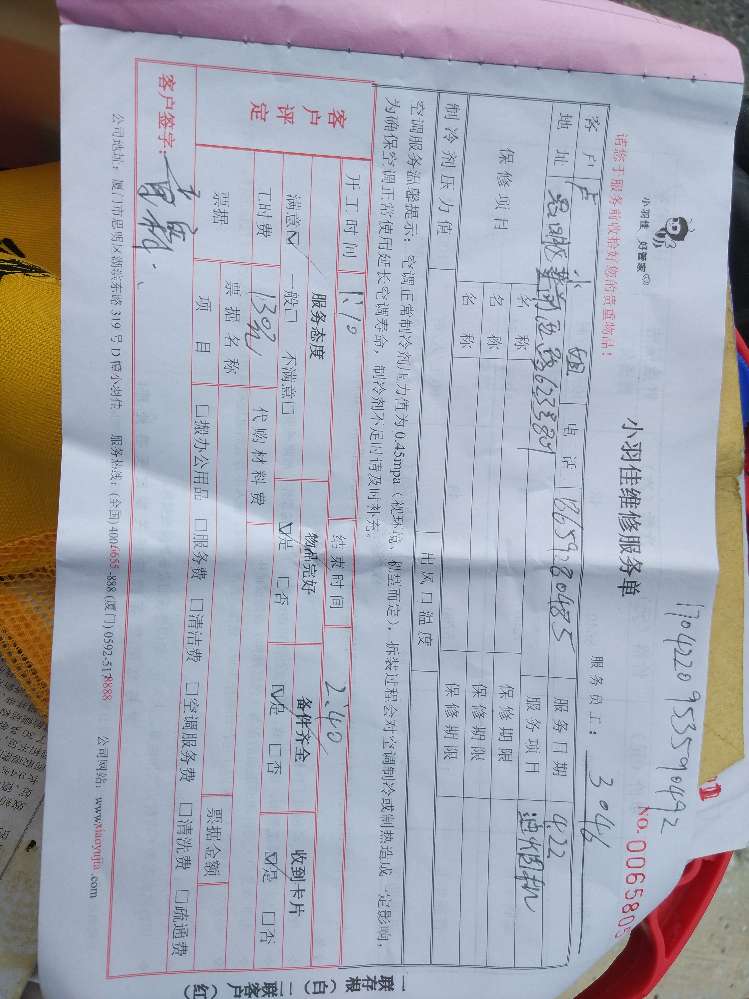 小羽佳 好管家
小羽佳维修服务单
1704220953590492
NO. 0065805
请您于服务前收拾好您的贵重物品!
服务员工: 3046
客户 卢小姐 电话 13659280485 服务日期 4.22
地址 服务项目 油烟机
保修项目 名称 保修期限
名称 保修期限
名称 保修期限
制冷剂压力值 出风口温度
空调服务温馨提示:空调正常制冷剂压力值为0.45mpa(视环境、机型而定),拆装过程会对空调制冷或制热造成一定影响,
为确保空调正常使用延长空调寿命,制冷剂不足时请及时补充。
开工时间 1:10 结束时间 2:40
客户评定 服务态度 物品完好 备件齐全 收到卡片
满意☑ 一般□ 不满意□ ☑是 □否 ☑是 □否 ☑是 □否
工时费 130元 代购材料费
票据 票据名称 票据金额
项目 □搬办公用品 □服务费 □清洁费 □空调服务费 □清洗费 □疏通费
客户签字:
公司地址:厦门市思明区湖滨东路319号D幢小羽佳 服务热线:(全国)4001655-888(厦门)0592-518888 公司网站:www.xiaoyujia.com
一联存根(白)二联客户(红)